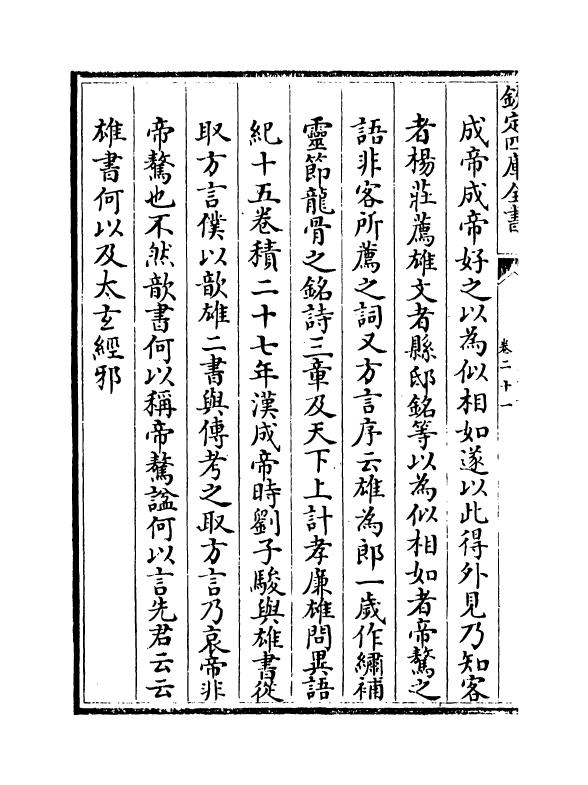 欽定四庫全書
卷二十一
成帝成帝好之以為似相如遂以此得外見乃知客
者楊莊薦雄文者縣邸銘等以為似相如者帝驁之
語非客所薦之詞又方言序云雄為郎一歲作繡補
靈節龍骨之銘詩三章及天下上計孝廉雄問異語
紀十五卷積二十七年漢成帝時劉子駿與雄書從
取方言僕以歆雄二書與傳考之取方言乃哀帝非
帝驁也不然歆書何以稱帝驁諡何以言先君云云
雄書何以及太玄經邪